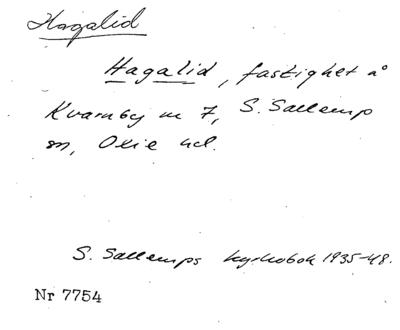 Hagalid
Hagalid, fastighet å
Kvarnby nr 7, S. Sallerup
sn, Oxie hd.
S. Sallerups kyrkobok 1935-48.
Nr 7754